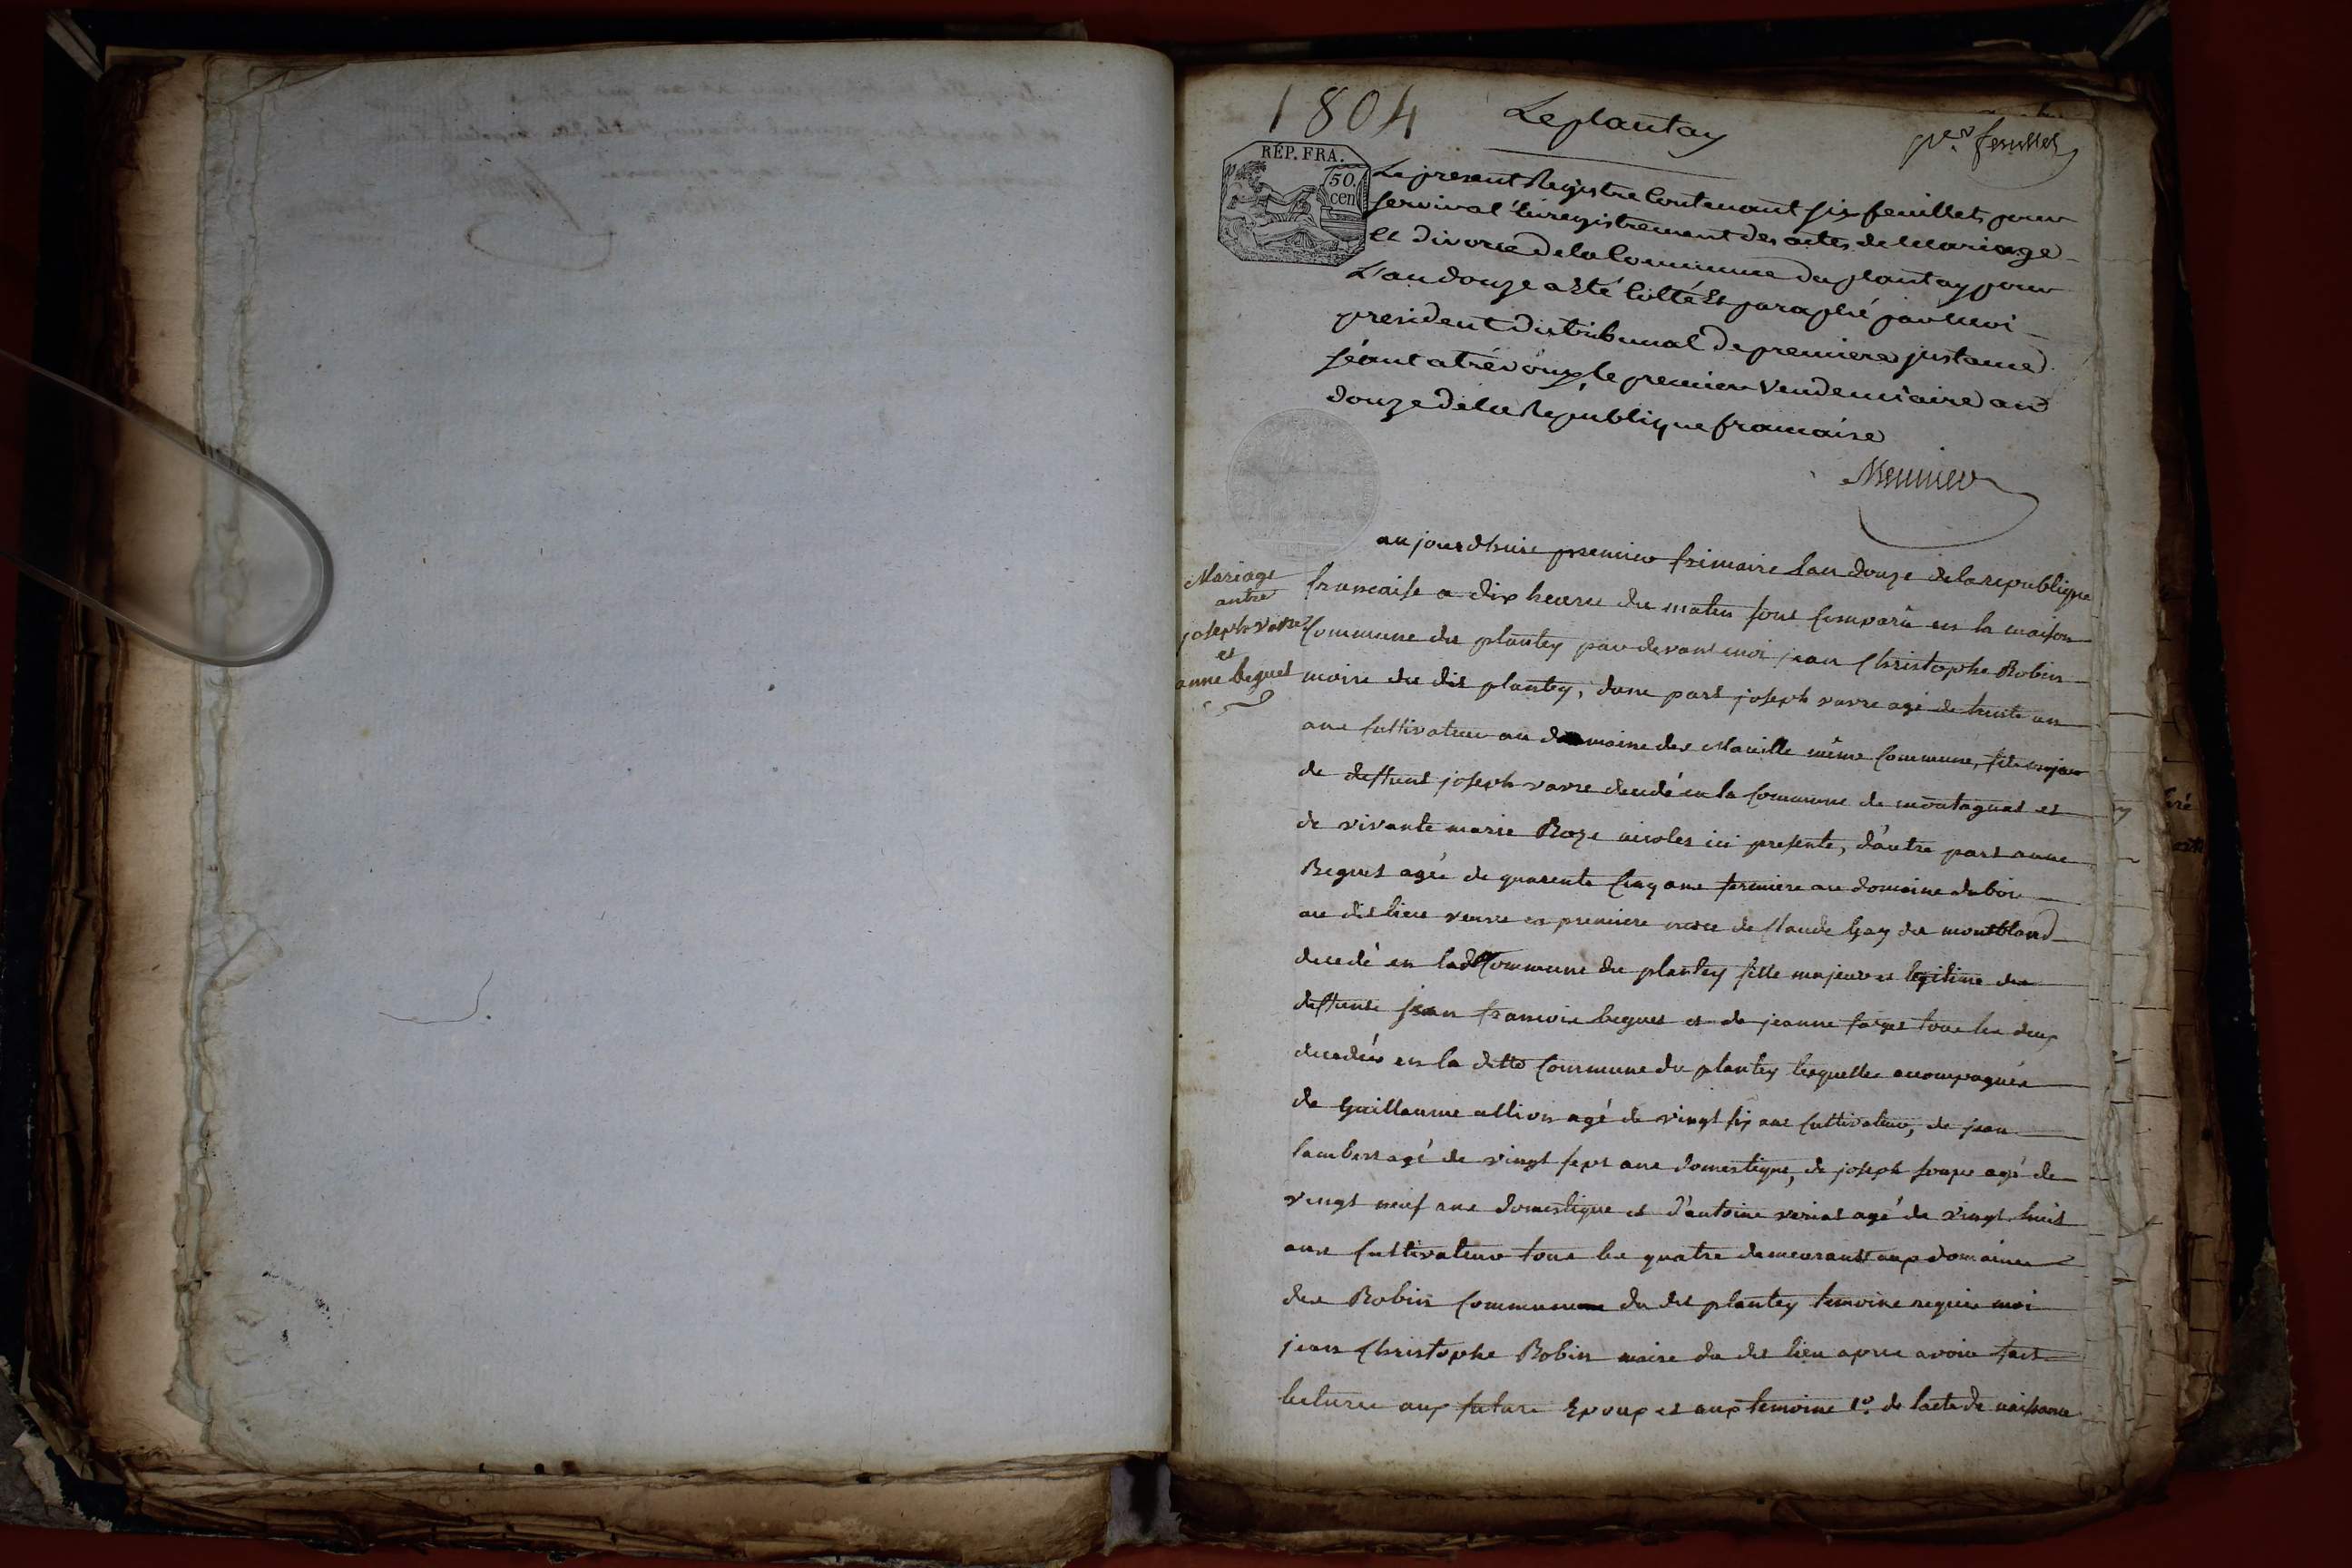 1804
Le plantay
p.er feuillet
RÉP. FRA.
50.
cen
Le present Registre Contenant six feuillets pour
servir a l'enregistrement des actes de Mariage
et divorce de la Commune du plantay pour
L'an douze a Eté Cotté Et paraphé par Moi
president du tribunal de premiere jnstance
séant a trévoux, le premier Vendemiaire an
douze de la Republique francaise
Meunier
Mariage
antre
joseph varre
et
anne beguet
aujourdhuie premier frimaire lan douze de la republique
francaise a dix heure du matin sont Comparû en la maison
Commune du plantey par devant moi jean Christophe Robin
maire du dit plantey, dune part joseph varre agé de trente un
ans Cultivateur au domaine des Mareille même Commune, fils majeur
de deffunt joseph varre decedé en la Commune de montagnat et
de vivante marie Roze nicoles ici presente, d'autre part anne
Beguet agée de quarente Cinq ans fermiere au domaine du bois
au dit lieu veuve en premiere noce de Claude Gay du montbland
decedé en lad Commune du plantey fille majeure et legitime des
deffunts jean francois beguet et de jeanne farges tous les deux
decedés en la ditte Commune du plantey lesquelles accompagnés
de Guillaume allion agé de vingt six ans Cultivateur, de jean
lambert agé de vingt sept ans domestique, de joseph agé de
vingt neuf ans domestique et d'antoine agé de vingt huit
ans Cultivateur tous les quatre demeurant aux domaines
des Robin Commune du dit plantey temoins requis moi
jean Christophe Robin maire du dit lieu apres avoir fait
lecture aux futurs Epoux et aux temoins 1.o de lacte de naissance